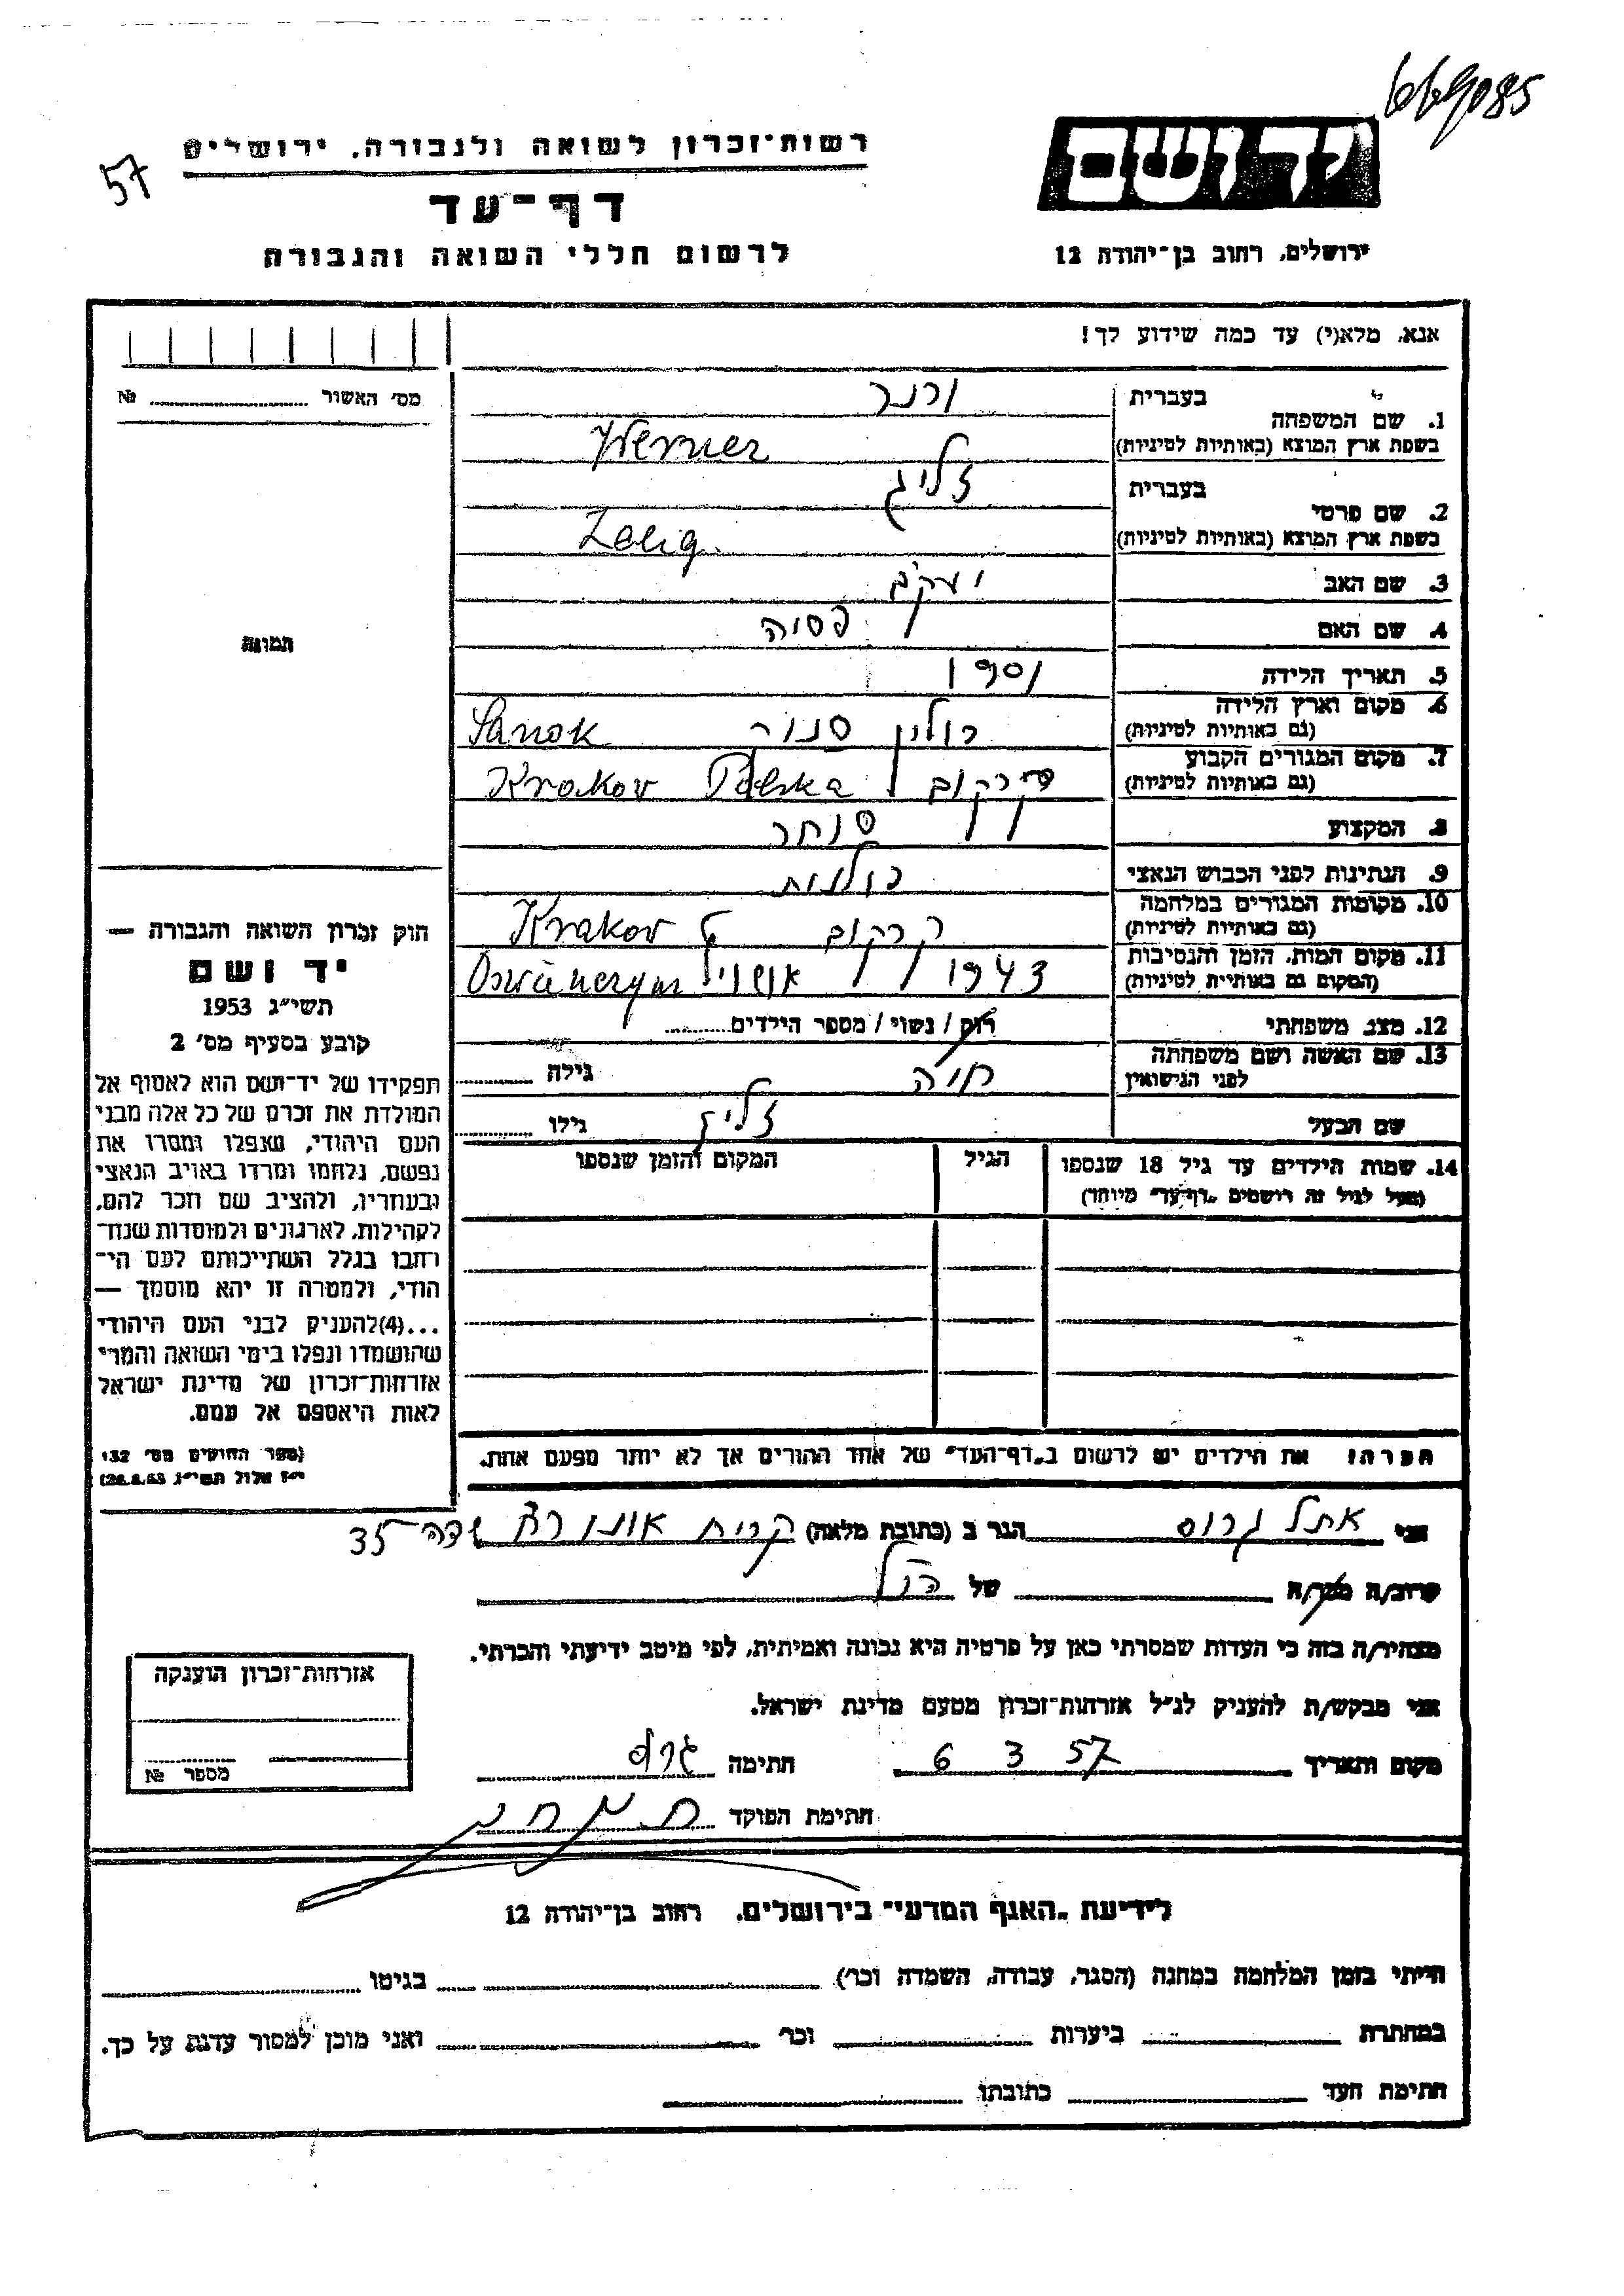 669085
יד ושם
ירושלים, רחוב בן־יהודה 12
רשות־זכרון לשואה ולגבורה, ירושלים
57
דף־עד
לרשום חללי השואה והגבורה
אנא, מלא(י) עד כמה שידוע לך!
מס׳ האשור № 
1. שם המשפחה בעברית ורנר
בשפת ארץ המוצא (באותיות לטיניות) Werner
2. שם פרטי בעברית זליג
בשפת ארץ המוצא (באותיות לטיניות) Zelig
3. שם האב יעקב
4. שם האם פסיה
5. תאריך הלידה 1901
6. מקום וארץ הלידה (גם באותיות לטיניות) פולין סנוק Sanok
7. מקום המגורים הקבוע (גם באותיות לטיניות) קרקוב Polska Krakov
8. המקצוע סוחר
9. הנתינות לפני הכבוש הנאצי פולנית
10. מקומות המגורים במלחמה (גם באותיות לטיניות) קרקוב Krakov
11. מקום המות, הזמן והנסיבות (המקום גם באותיות לטיניות) 1943
12. מצב משפחתי רוק / נשוי / מספר הילדים
13. שם האשה ושם משפחתה לפני הנישואין חיה גילה
שם הבעל זליג גילו
14. שמות הילדים עד גיל 18 שנספו
(מעל לגיל זה רושמים „דף־עד״ מיוחד)
הגיל
המקום והזמן שנספו
הערה: את הילדים יש לרשום ב„דף־העד״ של אחד ההורים אך לא יותר מפעם אחת.
התמונה
חוק זכרון השואה והגבורה —
יד ושם
תשי״ג 1953
קובע בסעיף מס׳ 2
תפקידו של יד־ושם הוא לאסוף אל
המולדת את זכרם של כל אלה מבני
העם היהודי, שנפלו ומסרו את
נפשם, נלחמו ומרדו באויב הנאצי
ובעוזריו, ולהציב שם וזכר להם,
לקהילות, לארגונים ולמוסדות שנח־
רבו בגלל השתייכותם לעם הי־
הודי, ולמטרה זו יהא מוסמך —
...(4)להעניק לבני העם היהודי
שהושמדו ונפלו בימי השואה והמרי
אזרחות־זכרון של מדינת ישראל
לאות היאספם אל עמם.
(ספר החוקים מס׳ 132
י״ז אלול תשי״ג 28.8.53)
אני אתל גרוס הגר ב (כתובת מלאה) קרית אונו רח שדה 35
קרוב/ה מכר/ה של הנ״ל
מצהיר/ה בזה כי העדות שמסרתי כאן על פרטיה היא נכונה ואמיתית, לפי מיטב ידיעתי והכרתי.
אני מבקש/ת להעניק לנ״ל אזרחות־זכרון מטעם מדינת ישראל.
מקום ותאריך 6 3 57 חתימה גרוס
חתימת הפוקד
אזרחות־זכרון הוענקה
מספר №
לידיעת „האגף המדעי״ בירושלים, רחוב בן־יהודה 12
הייתי בזמן המלחמה במחנה (הסגר, עבודה, השמדה וכו׳) בגיטו
במחתרת ביערות וכו׳ ואני מוכן למסור עדות על כך.
חתימת העד כתובתו